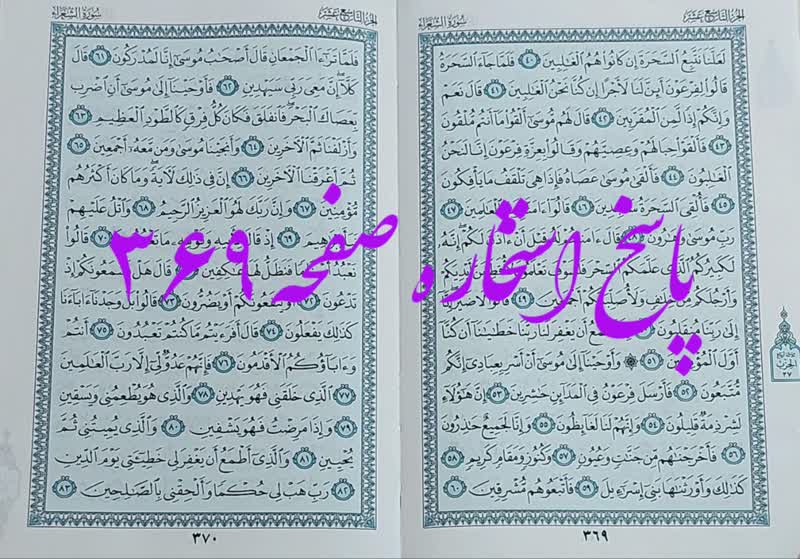 الجزء التاسع عشر
سورة الشعراء
لَعَلَّنَا نَتَّبِعُ السَّحَرَةَ إِن كَانُوا هُمُ الْغَالِبِينَ ٤٠ فَلَمَّا جَاءَ السَّحَرَةُ
قَالُوا لِفِرْعَوْنَ أَئِنَّ لَنَا لَأَجْرًا إِن كُنَّا نَحْنُ الْغَالِبِينَ ٤١ قَالَ نَعَمْ
وَإِنَّكُمْ إِذًا لَّمِنَ الْمُقَرَّبِينَ ٤٢ قَالَ لَهُم مُّوسَىٰ أَلْقُوا مَا أَنتُم مُّلْقُونَ
٤٣ فَأَلْقَوْا حِبَالَهُمْ وَعِصِيَّهُمْ وَقَالُوا بِعِزَّةِ فِرْعَوْنَ إِنَّا لَنَحْنُ
الْغَالِبُونَ ٤٤ فَأَلْقَىٰ مُوسَىٰ عَصَاهُ فَإِذَا هِيَ تَلْقَفُ مَا يَأْفِكُونَ
٤٥ فَأُلْقِيَ السَّحَرَةُ سَاجِدِينَ ٤٦ قَالُوا آمَنَّا بِرَبِّ الْعَالَمِينَ ٤٧
رَبِّ مُوسَىٰ وَهَارُونَ ٤٨ قَالَ آمَنتُمْ لَهُ قَبْلَ أَنْ آذَنَ لَكُمْ إِنَّهُ
لَكَبِيرُكُمُ الَّذِي عَلَّمَكُمُ السِّحْرَ فَلَسَوْفَ تَعْلَمُونَ لَأُقَطِّعَنَّ أَيْدِيَكُمْ
وَأَرْجُلَكُم مِّنْ خِلَافٍ وَلَأُصَلِّبَنَّكُمْ أَجْمَعِينَ ٤٩ قَالُوا لَا ضَيْرَ إِنَّا
إِلَىٰ رَبِّنَا مُنقَلِبُونَ ٥٠ إِنَّا نَطْمَعُ أَن يَغْفِرَ لَنَا رَبُّنَا خَطَايَانَا أَن كُنَّا
أَوَّلَ الْمُؤْمِنِينَ ٥١ وَأَوْحَيْنَا إِلَىٰ مُوسَىٰ أَنْ أَسْرِ بِعِبَادِي إِنَّكُم
مُّتَّبَعُونَ ٥٢ فَأَرْسَلَ فِرْعَوْنُ فِي الْمَدَائِنِ حَاشِرِينَ ٥٣ إِنَّ هَٰؤُلَاءِ
لَشِرْذِمَةٌ قَلِيلُونَ ٥٤ وَإِنَّهُمْ لَنَا لَغَائِظُونَ ٥٥ وَإِنَّا لَجَمِيعٌ حَاذِرُونَ
٥٦ فَأَخْرَجْنَاهُم مِّن جَنَّاتٍ وَعُيُونٍ ٥٧ وَكُنُوزٍ وَمَقَامٍ كَرِيمٍ ٥٨
كَذَٰلِكَ وَأَوْرَثْنَاهَا بَنِي إِسْرَائِيلَ ٥٩ فَأَتْبَعُوهُم مُّشْرِقِينَ ٦٠
٣٦٩
الحزب
٣٧
الجزء التاسع عشر
سورة الشعراء
فَلَمَّا تَرَاءَى الْجَمْعَانِ قَالَ أَصْحَابُ مُوسَىٰ إِنَّا لَمُدْرَكُونَ ٦١ قَالَ
كَلَّا إِنَّ مَعِيَ رَبِّي سَيَهْدِينِ ٦٢ فَأَوْحَيْنَا إِلَىٰ مُوسَىٰ أَنِ اضْرِب
بِّعَصَاكَ الْبَحْرَ فَانفَلَقَ فَكَانَ كُلُّ فِرْقٍ كَالطَّوْدِ الْعَظِيمِ ٦٣
وَأَزْلَفْنَا ثَمَّ الْآخَرِينَ ٦٤ وَأَنجَيْنَا مُوسَىٰ وَمَن مَّعَهُ أَجْمَعِينَ ٦٥
ثُمَّ أَغْرَقْنَا الْآخَرِينَ ٦٦ إِنَّ فِي ذَٰلِكَ لَآيَةً وَمَا كَانَ أَكْثَرُهُم
مُّؤْمِنِينَ ٦٧ وَإِنَّ رَبَّكَ لَهُوَ الْعَزِيزُ الرَّحِيمُ ٦٨ وَاتْلُ عَلَيْهِمْ
نَبَأَ إِبْرَاهِيمَ ٦٩ إِذْ قَالَ لِأَبِيهِ وَقَوْمِهِ مَا تَعْبُدُونَ ٧٠ قَالُوا
نَعْبُدُ أَصْنَامًا فَنَظَلُّ لَهَا عَاكِفِينَ ٧١ قَالَ هَلْ يَسْمَعُونَكُمْ إِذْ
تَدْعُونَ ٧٢ أَوْ يَنفَعُونَكُمْ أَوْ يَضُرُّونَ ٧٣ قَالُوا بَلْ وَجَدْنَا آبَاءَنَا
كَذَٰلِكَ يَفْعَلُونَ ٧٤ قَالَ أَفَرَأَيْتُم مَّا كُنتُمْ تَعْبُدُونَ ٧٥ أَنتُمْ
وَآبَاؤُكُمُ الْأَقْدَمُونَ ٧٦ فَإِنَّهُمْ عَدُوٌّ لِّي إِلَّا رَبَّ الْعَالَمِينَ
٧٧ الَّذِي خَلَقَنِي فَهُوَ يَهْدِينِ ٧٨ وَالَّذِي هُوَ يُطْعِمُنِي وَيَسْقِينِ
٧٩ وَإِذَا مَرِضْتُ فَهُوَ يَشْفِينِ ٨٠ وَالَّذِي يُمِيتُنِي ثُمَّ
يُحْيِينِ ٨١ وَالَّذِي أَطْمَعُ أَن يَغْفِرَ لِي خَطِيئَتِي يَوْمَ الدِّينِ
٨٢ رَبِّ هَبْ لِي حُكْمًا وَأَلْحِقْنِي بِالصَّالِحِينَ ٨٣
٣٧٠
پاسخ استخاره صفحه ۳۶۹